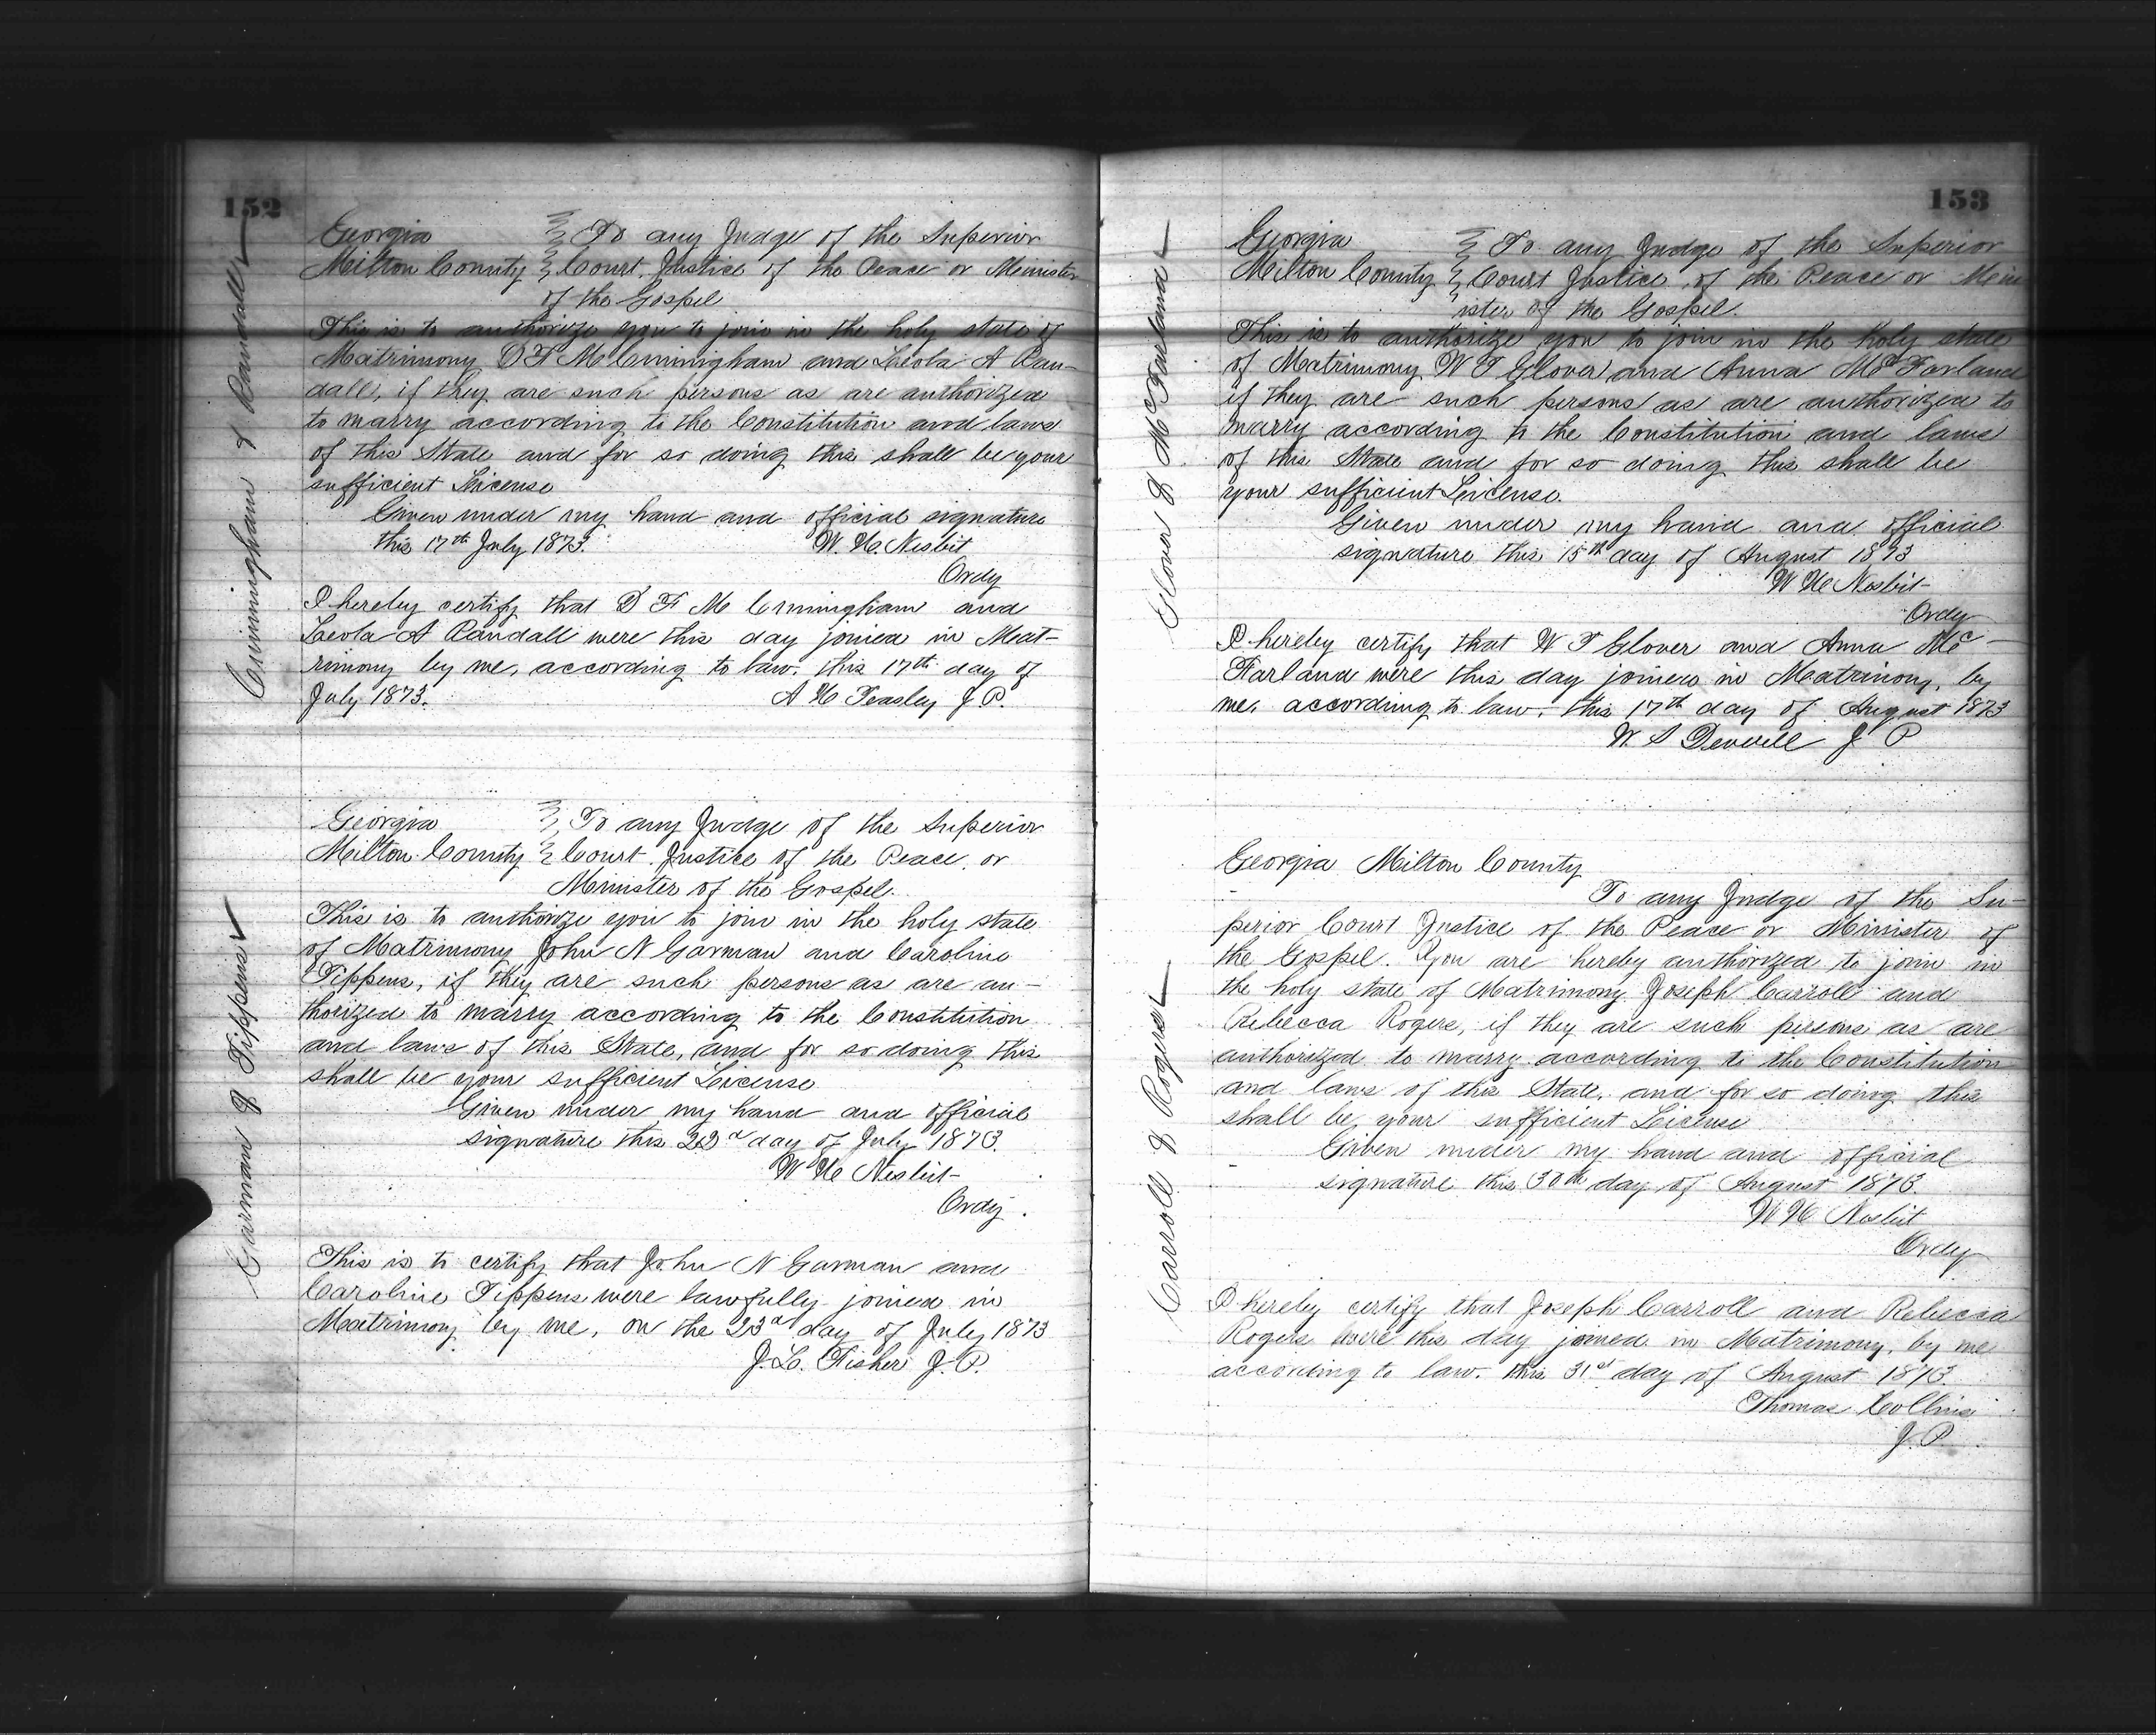 152
Cunningham & Randall
Georgia To any Judge of the Superior
Milton County Court, Justice of the Peace or Minister
of the Gospel
This is to authorize you to join in the holy state of
Matrimony D F M Cunningham and Leola A Ran-
dall, if they are such persons as are authorized
to marry according to the Constitution and laws
of this State and for so doing this shall be your
sufficient License
Given under my hand and official signature
this 17th July 1873. W. H. Nesbit
Ordy
I hereby certify that D F M Cunningham and
Leola A Randall were this day joined in Mat-
rimony by me, according to law. this 17th day of
July 1873. A H Teasley J P.
Garman & Tippens
Georgia To any Judge of the Superior
Milton County Court Justice of the Peace, or
Minister of the Gospel.
This is to authorize you to join in the holy state
of Matrimony John N Garman and Caroline
Tippens, if they are such persons as are au-
thorized to marry according to the Constitution
and laws of this State, and for so doing this
shall be your sufficient License
Given under my hand and official
signature this 23d day of July 1873.
W H Nesbit
Ordy.
This is to certify that John N Garman and
Caroline Tippens were lawfully joined in
Matrimony by me, on the 23d day of July 1873
J. L. Fisher J. P.
153
Glover & McFarland
Georgia To any Judge of the Superior
Milton County Court Justice of the Peace or Min
ister of the Gospel.
This is to authorize you to join in the holy state
of Matrimony W T Glover and Anna McFarland
if they are such persons as are authorized to
marry according to the Constitution and laws
of this State and for so doing this shall be
your sufficient License.
Given under my hand and official
signature this 15th day of August 1873
W H Nesbit
Ordy
I hereby certify that W T Glover and Anna Mc-
Farland were this day joined in Matrimony, by
me, according to law. this 17th day of August 1873
W. S J P
Carroll & Rogers
Georgia Milton County
To any Judge of the Su-
perior Court Justice of the Peace or Minister of
the Gospel. You are hereby authorized to join in
the holy state of Matrimony Joseph Carroll and
Rebecca Rogers, if they are such persons as are
authorized to marry according to the Constitution
and laws of this State, and for so doing this
shall be your sufficient License
Given under my hand and official
signature this 30th day of August 1873.
W H. Nesbit
Ordy
I hereby certify that Joseph Carroll and Rebecca
Rogers were this day joined in Matrimony, by me
according to law. this 31st day of August 1873.
Thomas Collins
J. P.